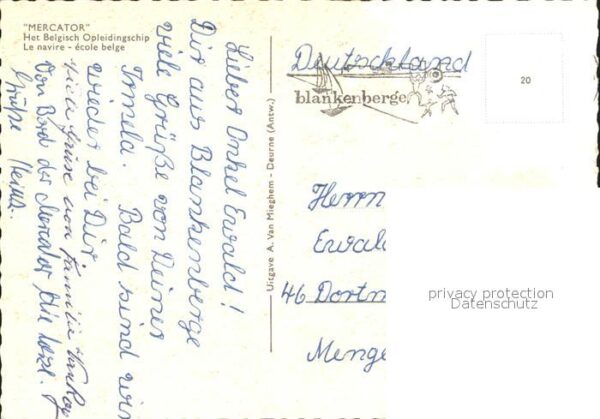 "MERCATOR"
Het Belgisch Opleidingschip
Le navire - école belge
Lieber Onkel Ewald!
Dir aus Blankenberge
viele Grüße von Deiner
Irmela. Bald sind wir
wieder bei Dir
viele Grüsse von Familie
Von Bord der Mercator die
Grüße
Uitgave A. Van Mieghem - Deurne (Antw.)
Deutschland
blankenberge
20
Herrn
Ewald
46 Dortm
Menge
privacy protection
Datenschutz